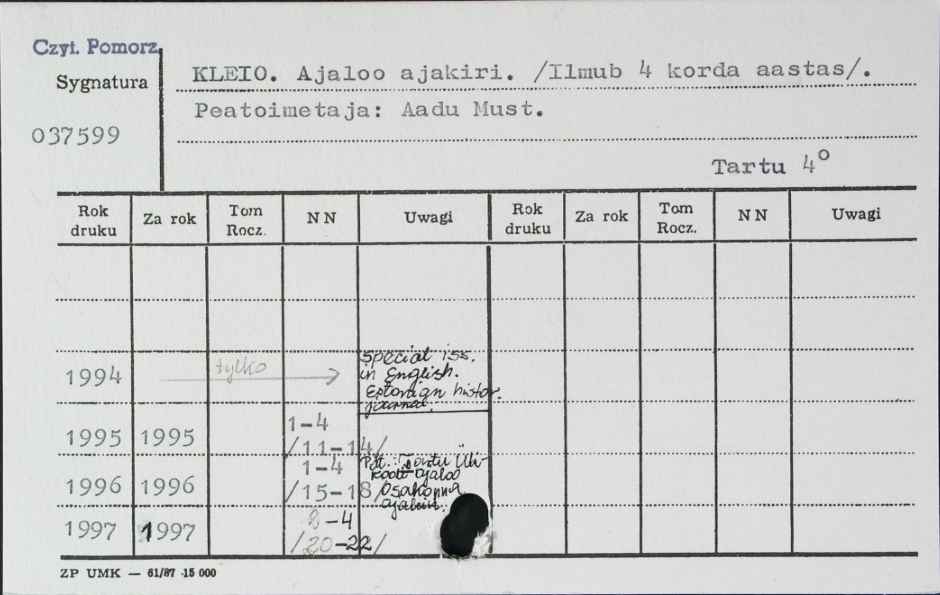 Czyt. Pomorz.
Sygnatura
037599
KLEIO. Ajaloo ajakiri. /Ilmub 4 korda aastas/.
Peatoimetaja: Aadu Must.
Tartu 4°
Rok druku Za rok Tom Rocz. NN Uwagi Rok druku Za rok Tom Rocz. NN Uwagi
1994 tylko special iss.
in English.
histor.
journal.
1995 1995 1-4
/11-14/
1996 1996 1-4 Tartu Üli-
kooli ajaloo
/15-18/ Osakonna
1997 1997 2-4
/20-22/
ZP UMK — 61/87 15 000